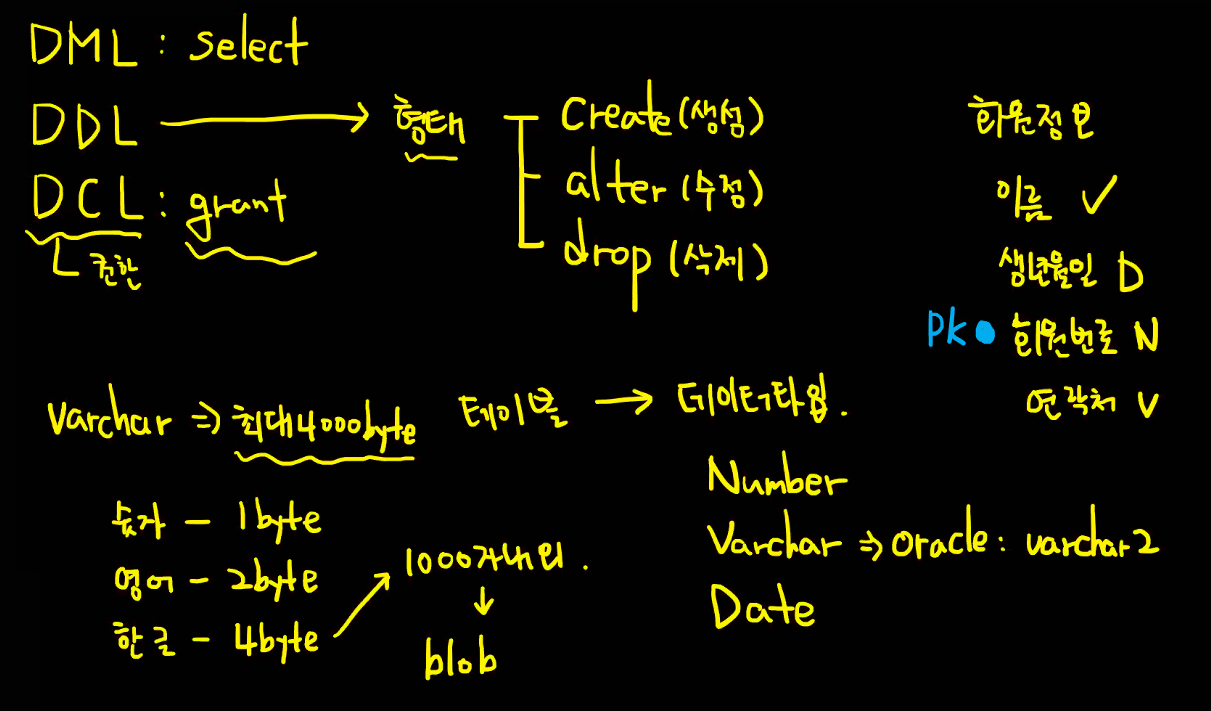 DML : select
DDL → 형태
create (생성)
alter (수정)
drop (삭제)
DCL : grant
권한
회원정보
이름 ✓
생년월일 D
PK ● 회원번호 N
연락처 V
Varchar ⇒ 최대4000byte
숫자 - 1byte
영어 - 2byte
한글 - 4byte → 1000자내외.
↓
blob
테이블 → 데이터타입.
Number
Varchar ⇒ oracle : varchar2
Date